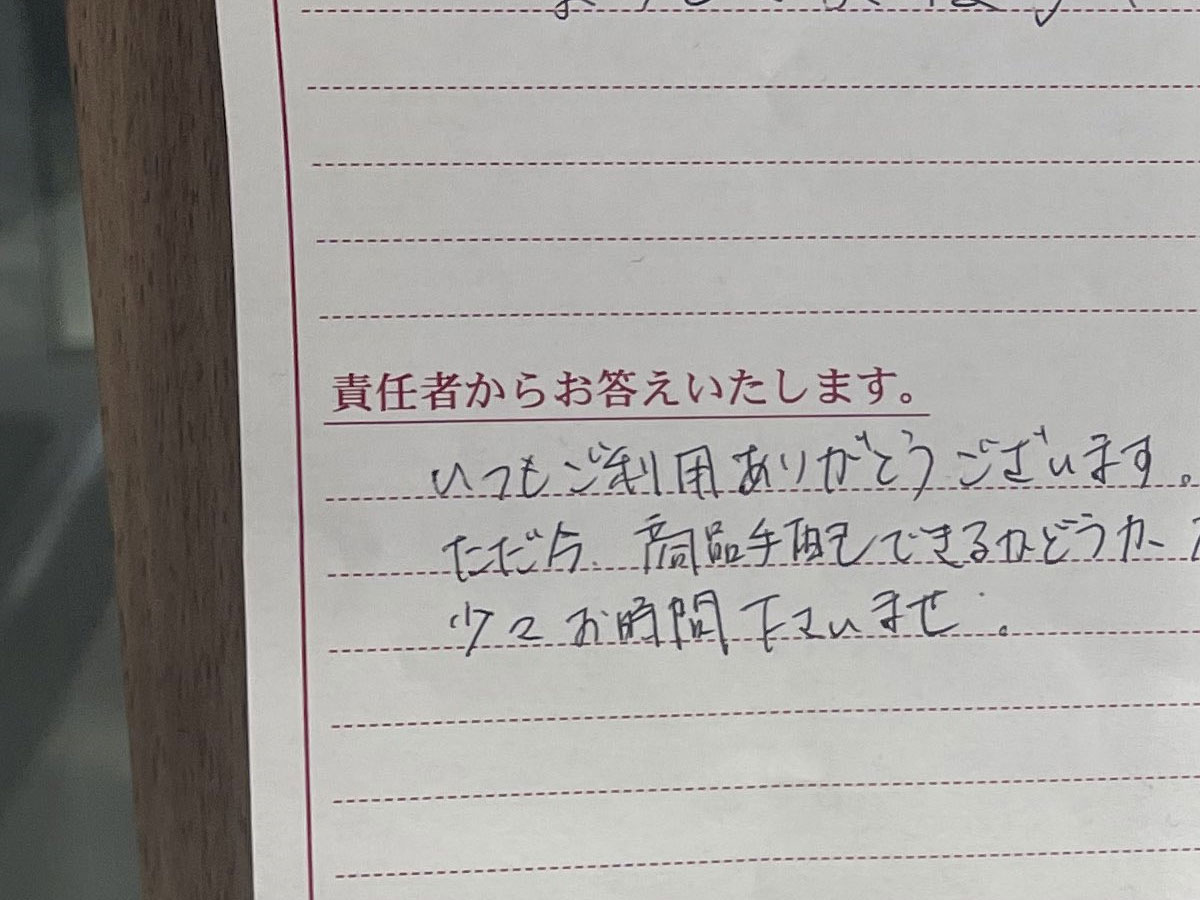 責任者からお答えいたします。
いつもご利用ありがとうございます。
ただ今、商品手配できるかどうか
少々お時間下さいませ。